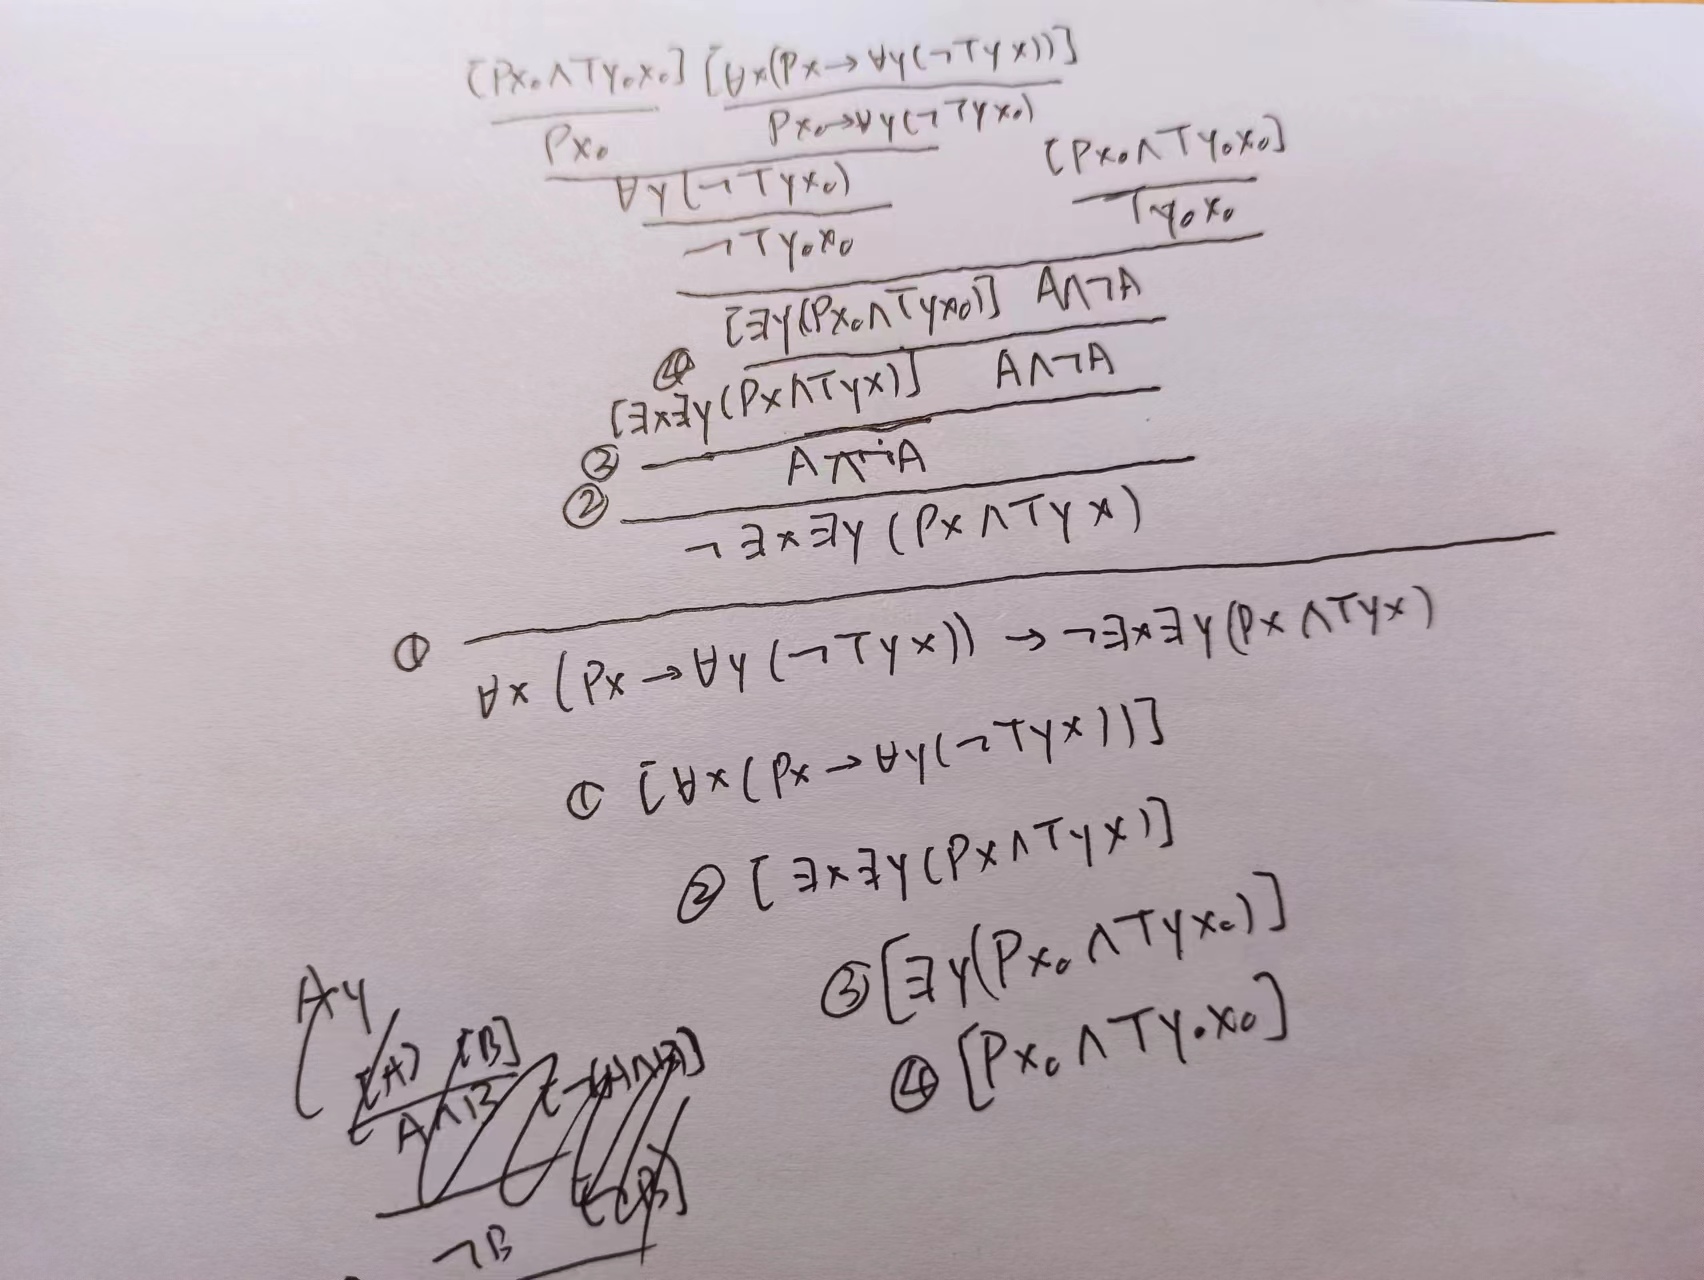 [Px₀∧Ty₀x₀] [∀x(Px→∀y(¬Tyx))]
Px₀ Px₀→∀y(¬Tyx₀)
[Px₀∧Ty₀x₀]
∀y(¬Tyx₀)
Ty₀x₀
¬Ty₀x₀
[∃y(Px₀∧Tyx₀)] A∧¬A
④ [∃x∃y(Px∧Tyx)] A∧¬A
③ A∧¬A
② ¬∃x∃y(Px∧Tyx)
① ∀x(Px→∀y(¬Tyx))→¬∃x∃y(Px∧Tyx)
① [∀x(Px→∀y(¬Tyx))]
② [∃x∃y(Px∧Tyx)]
③ [∃y(Px₀∧Tyx₀)]
④ [Px₀∧Ty₀x₀]
[A] [B]
A∧B [¬(A∧B)]
¬B